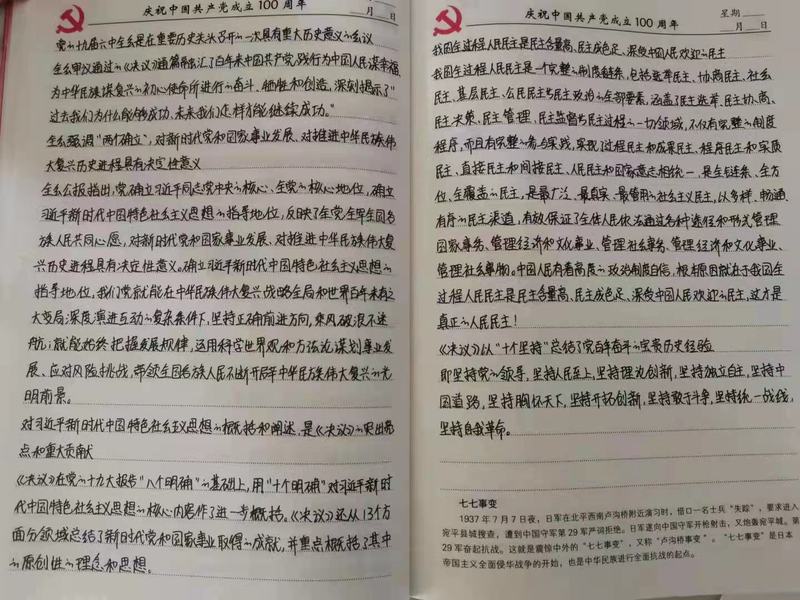 庆祝中国共产党成立100周年
月 日
党的十九届六中全会是在重要历史关头召开的一次具有重大历史意义的会议
全会审议通过的《决议》通篇贯汇了百年来中国共产党践行为中国人民谋幸福、
为中华民族谋复兴的初心使命所进行的奋斗、牺牲和创造,深刻揭示了"
过去我们为什么能够成功、未来我们怎样才能继续成功。"
全会强调"两个确立",对新时代党和国家事业发展、对推进中华民族伟
大复兴历史进程具有决定性意义
全会公报指出,党确立习近平同志党中央的核心、全党的核心地位,确立
习近平新时代中国特色社会主义思想的指导地位,反映了全党全军全国各
族人民共同心愿,对新时代党和国家事业发展、对推进中华民族伟大复
兴历史进程具有决定性意义。确立习近平新时代中国特色社会主义思想的
指导地位,我们党就能在中华民族伟大复兴战略全局和世界百年未有之
大变局深度演进互动的复杂条件下,坚持正确前进方向,乘风破浪不迷
航;就能始终把握发展规律,运用科学世界观和方法论谋划事业发
展、应对风险挑战,带领全国各族人民不断开辟中华民族伟大复兴的光
明前景。
对习近平新时代中国特色社会主义思想的概括和阐述,是《决议》的突出亮
点和重大贡献
《决议》在党的十九大报告"八个明确"的基础上,用"十个明确"对习近平新时
代中国特色社会主义思想的核心内容作了进一步概括。《决议》还从13个方
面分领域总结了新时代党和国家事业取得的成就,并重点概括了其中
的原创性的理念和思想。
庆祝中国共产党成立100周年
星期
月 日
我国全过程人民民主是民主含量高、民主成色足、深受中国人民欢迎的民主
我国全过程人民民主是一个完整的制度链条,包括选举民主、协商民主、社会
民主、基层民主、公民民主等民主政治的全部要素,涵盖了民主选举、民主协商、
民主决策、民主管理、民主监督等民主过程的一切领域,不仅有完整的制度
程序,而且有完整的参与实践,实现了过程民主和成果民主、程序民主和实质
民主、直接民主和间接民主、人民民主和国家意志相统一,是全链条、全方
位、全覆盖的民主,是最广泛、最真实、最管用的社会主义民主,以多样、畅通、
有序的民主渠道,有效保证了全体人民依法通过各种途径和形式管理
国家事务、管理经济和文化事业、管理社会事务、管理经济和文化事业、
管理社会事物。中国人民有着高度的政治制度自信,根本原因就在于我国全
过程人民民主是民主含量高、民主成色足、深受中国人民欢迎的民主,这才是
真正的人民民主!
《决议》以"十个坚持"总结了党百年奋斗的宝贵历史经验
即坚持党的领导,坚持人民至上,坚持理论创新,坚持独立自主,坚持中
国道路,坚持胸怀天下,坚持开拓创新,坚持敢于斗争,坚持统一战线,
坚持自我革命。
七七事变
1937年7月7日夜,日军在北平西南卢沟桥附近演习时,借口一名士兵"失踪",要求进入
宛平县城搜查,遭到中国守军第29军严词拒绝。日军遂向中国守军开枪射击,又炮轰宛平城。第
29军奋起抗战。这就是震惊中外的"七七事变",又称"卢沟桥事变"。"七七事变"是日本
帝国主义全面侵华战争的开始,也是中华民族进行全面抗战的起点。